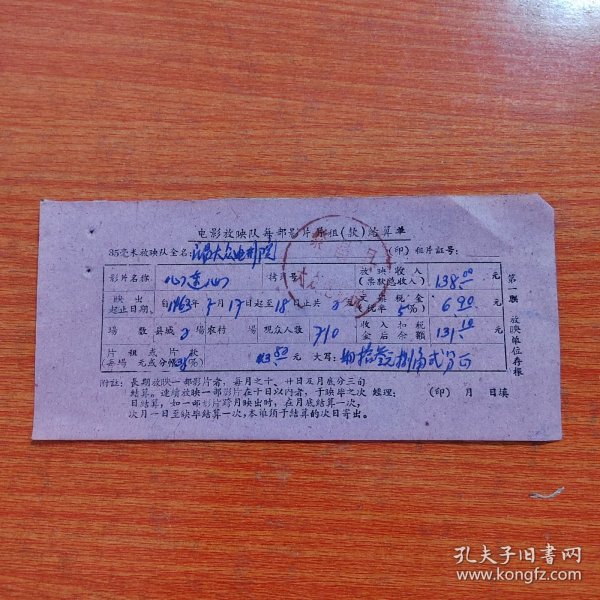 电影放映队每部影片片租(款)结算单
35毫米放映队全名: 大众电影院 (印) 租片証号:
影片名称 心连心 拷贝号 放映收入(票款总收入) 138.00 元
映出起止日期 自1963年 月17日起至18日止共2天 税金(税率5%) 6.90 元
場数 县城2場农村 場 观众人数 710 收入扣税金后余额 131.10 元
片租点片款(每場 元或分帐35%) 大写: 肆拾 元捌角 分正
第一联 放映单位存根
附註:長期放映一部影片者,每月之十、廿日及月底分三旬
結算。連續放映一部影片在十日以內者,于映毕之次
日結算,如一部影片跨月映出时,在月底結算一次,
次月一日至映毕結算一次,本单须于結算的次日寄出。
經理: (印) 月 日填
孔夫子旧书网
www.kongfz.com